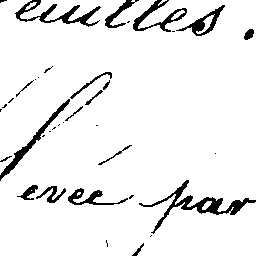 euilles.
levée par